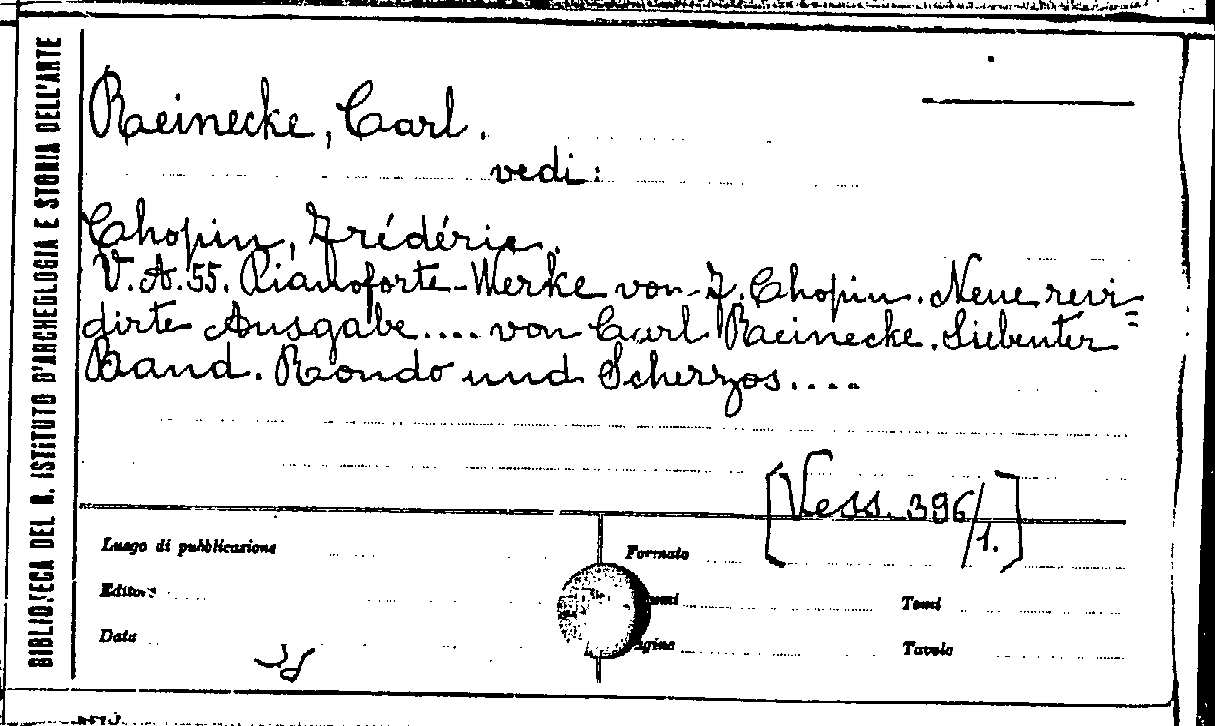 BIBLIOTECA DEL R. ISTITUTO D'ARCHEOLOGIA E STORIA DELL'ARTE
Reinecke, Carl.
vedi:
Chopin, Frédéric.
V.A.55. Pianoforte-Werke von F. Chopin. Neue revi=
dirte Ausgabe.... von Carl Reinecke. Siebenter
Band. Rondo und Scherzos....
[Vess. 396/1.]
Luogo di pubblicazione
Formato
Editore
Tomi
Data
Tavole